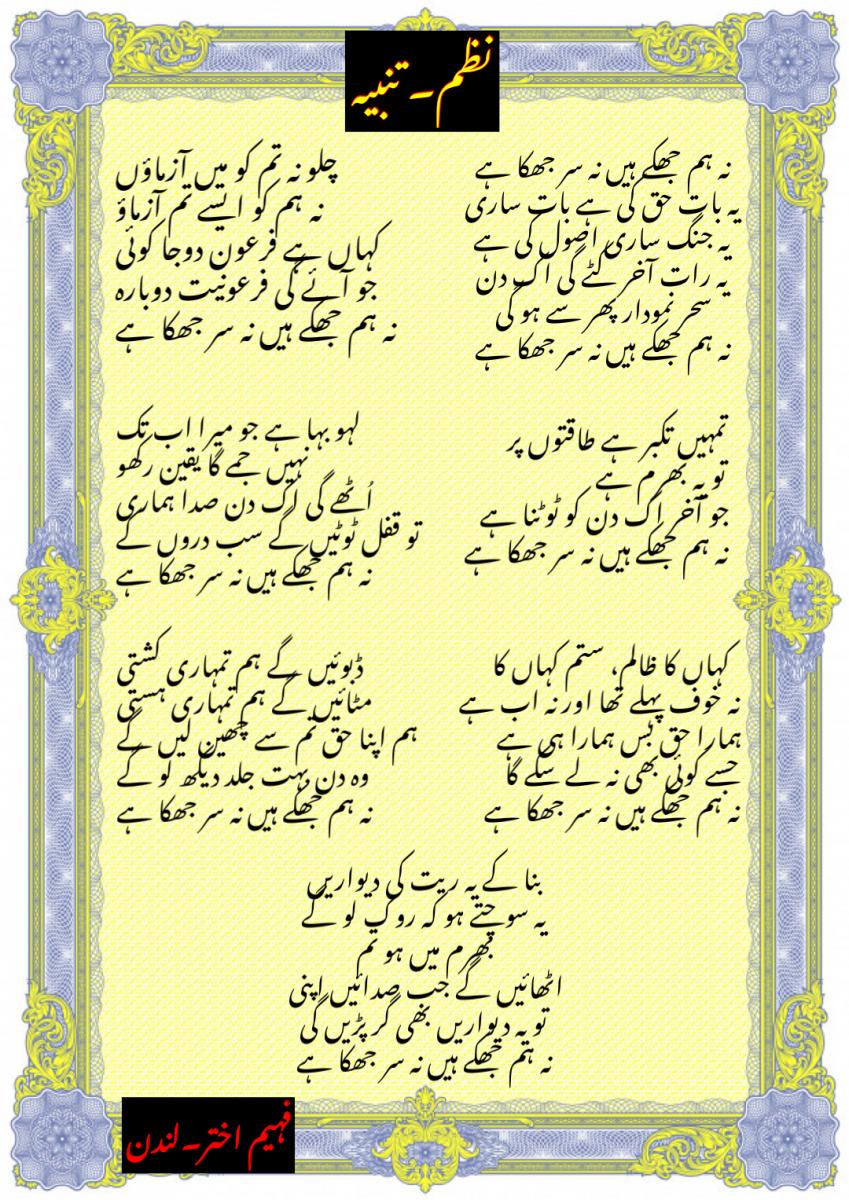 نظم۔ تنبیہ
نہ ہم جھکے ہیں نہ سر جھکا ہے
یہ بات حق کی ہے بات ساری
یہ جنگ ساری اصول کی ہے
یہ رات آخر کٹے گی اک دن
سحر نمودار پھر سے ہو گی
نہ ہم جھکے ہیں نہ سر جھکا ہے
چلو نہ تم کو میں آزماؤں
نہ ہم کو ایسے تم آزماؤ
کہاں ہے فرعون دوجا کوئی
جو آئے گی فرعونیت دوبارہ
نہ ہم جھکے ہیں نہ سر جھکا ہے
تمہیں تکبر ہے طاقتوں پر
تو یہ بھرم ہے
جو آخر اک دن کو ٹوٹنا ہے
نہ ہم جھکے ہیں نہ سر جھکا ہے
لہو بہا ہے جو میرا اب تک
نہیں جمے گا یقین رکھو
اُٹھے گی اک دن صدا ہماری
تو قفل ٹوٹیں گے سب دروں کے
نہ ہم جھکے ہیں نہ سر جھکا ہے
کہاں کا ظالم، ستم کہاں کا
نہ خوف پہلے تھا اور نہ اب ہے
ہمارا حق بس ہمارا ہی ہے
جسے کوئی بھی نہ لے سکے گا
نہ ہم جھکے ہیں نہ سر جھکا ہے
ڈبوئیں گے ہم تمہاری کشتی
مٹائیں گے ہم تمہاری ہستی
ہم اپنا حق تم سے چھین لیں گے
وہ دن بہت جلد دیکھ لو گے
نہ ہم جھکے ہیں نہ سر جھکا ہے
بنا کے یہ ریت کی دیواریں
یہ سوچتے ہو کہ روک لو گے
بھرم میں ہو تم
اٹھائیں گے جب صدائیں اپنی
تو یہ دیواریں بھی گر پڑیں گی
نہ ہم جھکے ہیں نہ سر جھکا ہے
فہیم اختر۔لندن